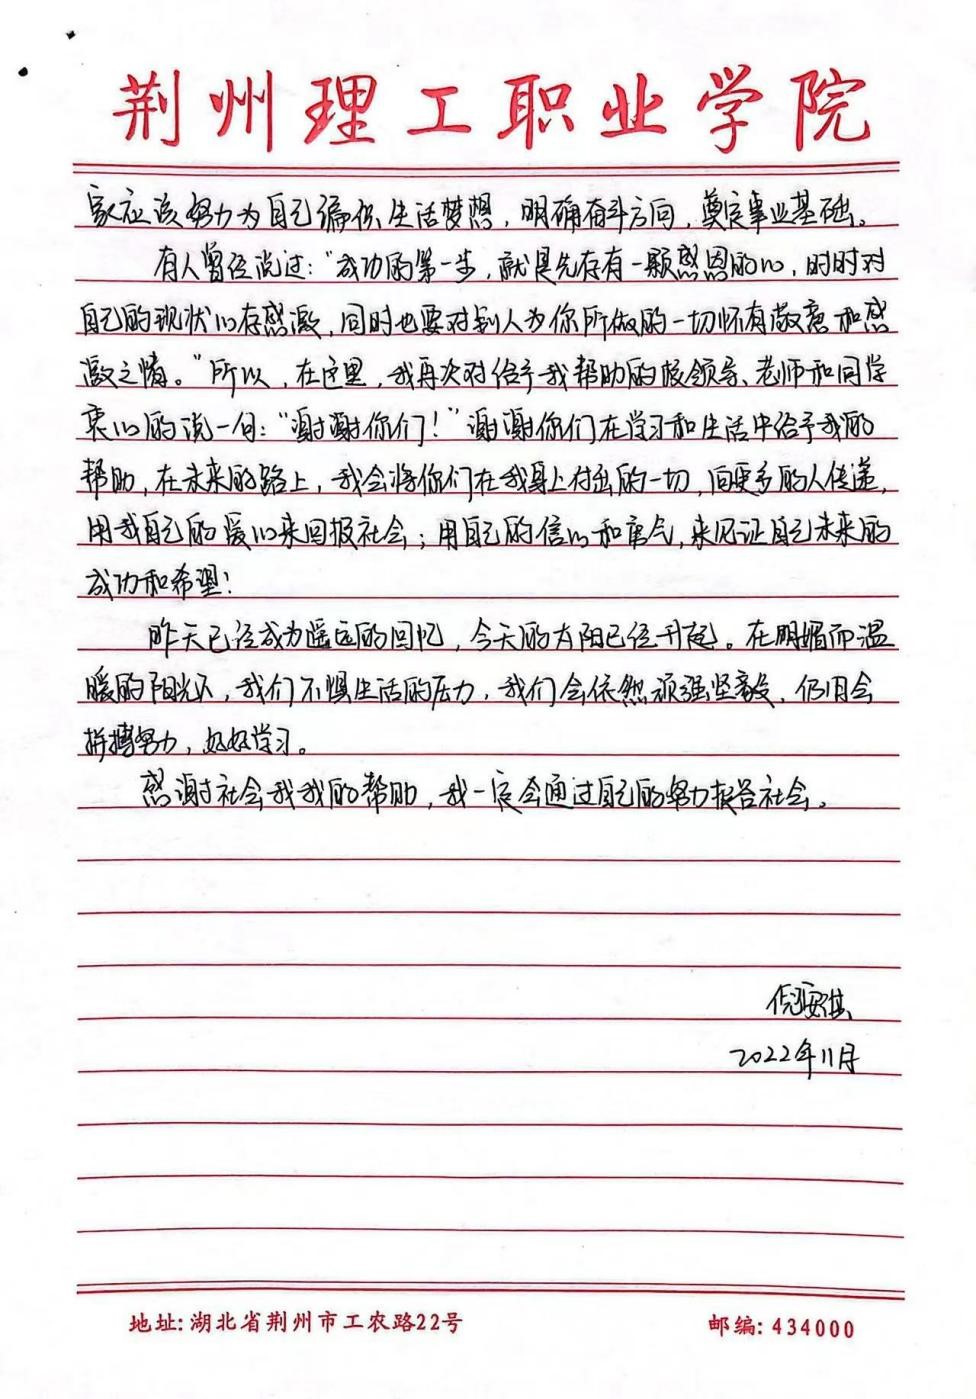 荆州理工职业学院
家应该努力为自己编织生活梦想，明确奋斗方向，奠定事业基础。
有人曾经说过：“成功的第一步，就是先存有一颗感恩的心，时时对
自己的现状心存感激，同时也要对别人为你所做的一切怀有敬意和感
激之情。”所以，在这里，我再次对给予我帮助的校领导、老师和同学
衷心的说一句：“谢谢你们！”谢谢你们在学习和生活中给予我的
帮助，在未来的路上，我会将你们在我身上付出的一切，向更多的人传递，
用我自己的爱心来回报社会；用自己的信心和勇气，来见证自己未来的
成功和希望！
昨天已经成为遥远的回忆，今天的太阳已经升起。在明媚而温
暖的阳光下，我们不惧生活的压力，我们会依然顽强坚毅，仍旧会
拼搏努力，好好学习。
感谢社会我我的帮助，我一定会通过自己的努力报答社会。
倪安琪
2022年11月
地址:湖北省荆州市工农路22号
邮编:434000